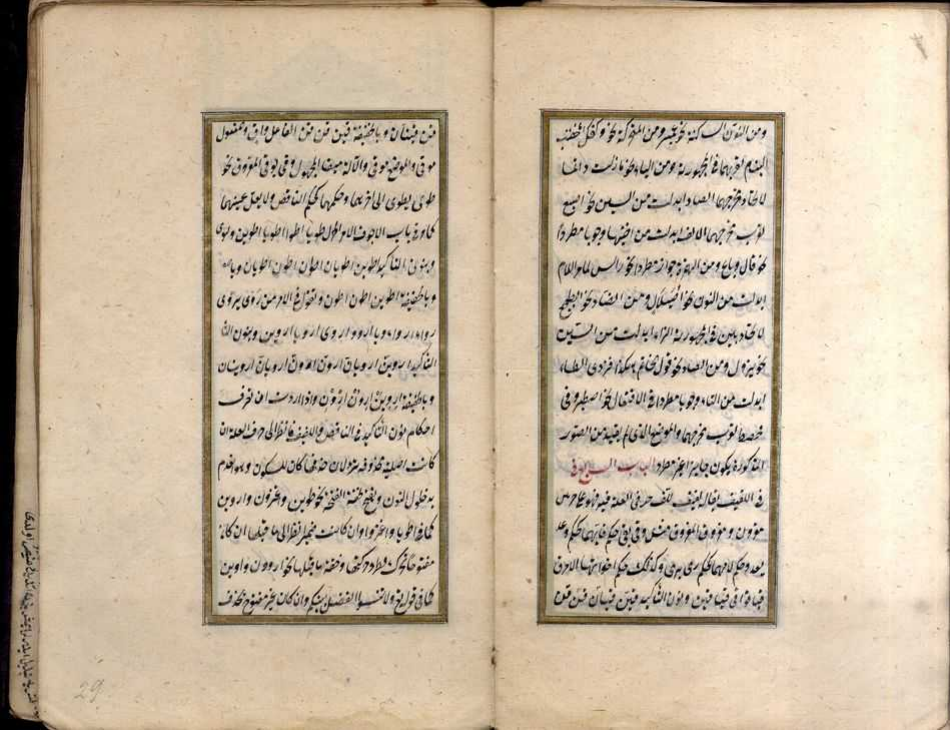 ومن النون الساكنة نحو عمبر ومن المتحركة نحو وكفك المخضب
البنام لقربهما في المجهورية ومن الباء نحو ما زلت راتما
لاتحاد مخرجهما الصاد ابدلت من السين نحو اصبغ
لقرب مخرجهما الالف ابدلت من اختيها وجوبا مطردا
نحو قال وباع ومن الهمزة جوازا مطردا نحو راس لما مر اللام
ابدلت من النون نحو اصيلال ومن الضاد نحو الطجع
لاتحادهن في المجهورية الزاء ابدلت من السين
نحو يزدل ومن الصاد نحو قول حاتم هكذا فزدى الطاء
ابدلت من التاء وجوبا مطردا في الافتعال نحو اصطبر وفي
فحصط لقرب مخرجهما والموضع الذي لم يقيد من الصور
المذكورة يكون جايزا غير مطرد الباب السابع في
في اللفيف يقال لفيف للف حرفي العلة فيه وهو على ضربين
مفروق ومقرون المفروق مثل وقى يقي حكم فائهما كحكم وعد
يعد وحكم لامهما كحكم رمى يرمي وكذلك حكم اخواتهما الامر ق
قيا قوا قي قيا قين وبنون التاكيد قين قيان قن قن
قن قينان وبالخفيفة قين قن قن الفاعل واق والمفعول
موقي والموضع موقى والآلة ميقى المجهول وقي يوقى المقرون نحو
طوى يطوي الى اخرهما وحكمهما كحكم الناقص ولا يعل عينهما
كما مر في باب الاجوف الامر اطو اطويا اطووا اطوي اطويا اطوين
وبنون التاكيد اطوين اطويان اطون اطون اطويان
وبالخفيفة اطوين اطون اطون وتقول في الامر من روى يروى
ارو ارويا ارووا اروي ارويا اروين وبنون
التاكيد اروين ارويان ارون ارون ارويان اروينان
وبالخفيفة اروين ارون ارون واذا اردت ان تعرف
احكام نون التاكيد في الناقص واللفيف فانظر الى حرف العلة ان
كانت اصلية محذوفة ترد لان حذفها كان للسكون وهو انعدم
بدخول النون وتفتح لخفة الفتحة نحو اطوين واغزون واروين
كما في اطويا واغزوا وان كانت ضميرا فانظر الى ما قبلها ان كان
مفتوحا تحرك لطرو حركتها وخفة ما قبلها نحو اروون واروين
كما في قوله تعالى ولا تنسوا الفضل بينكم وان كان غير مفتوح تحذف
29